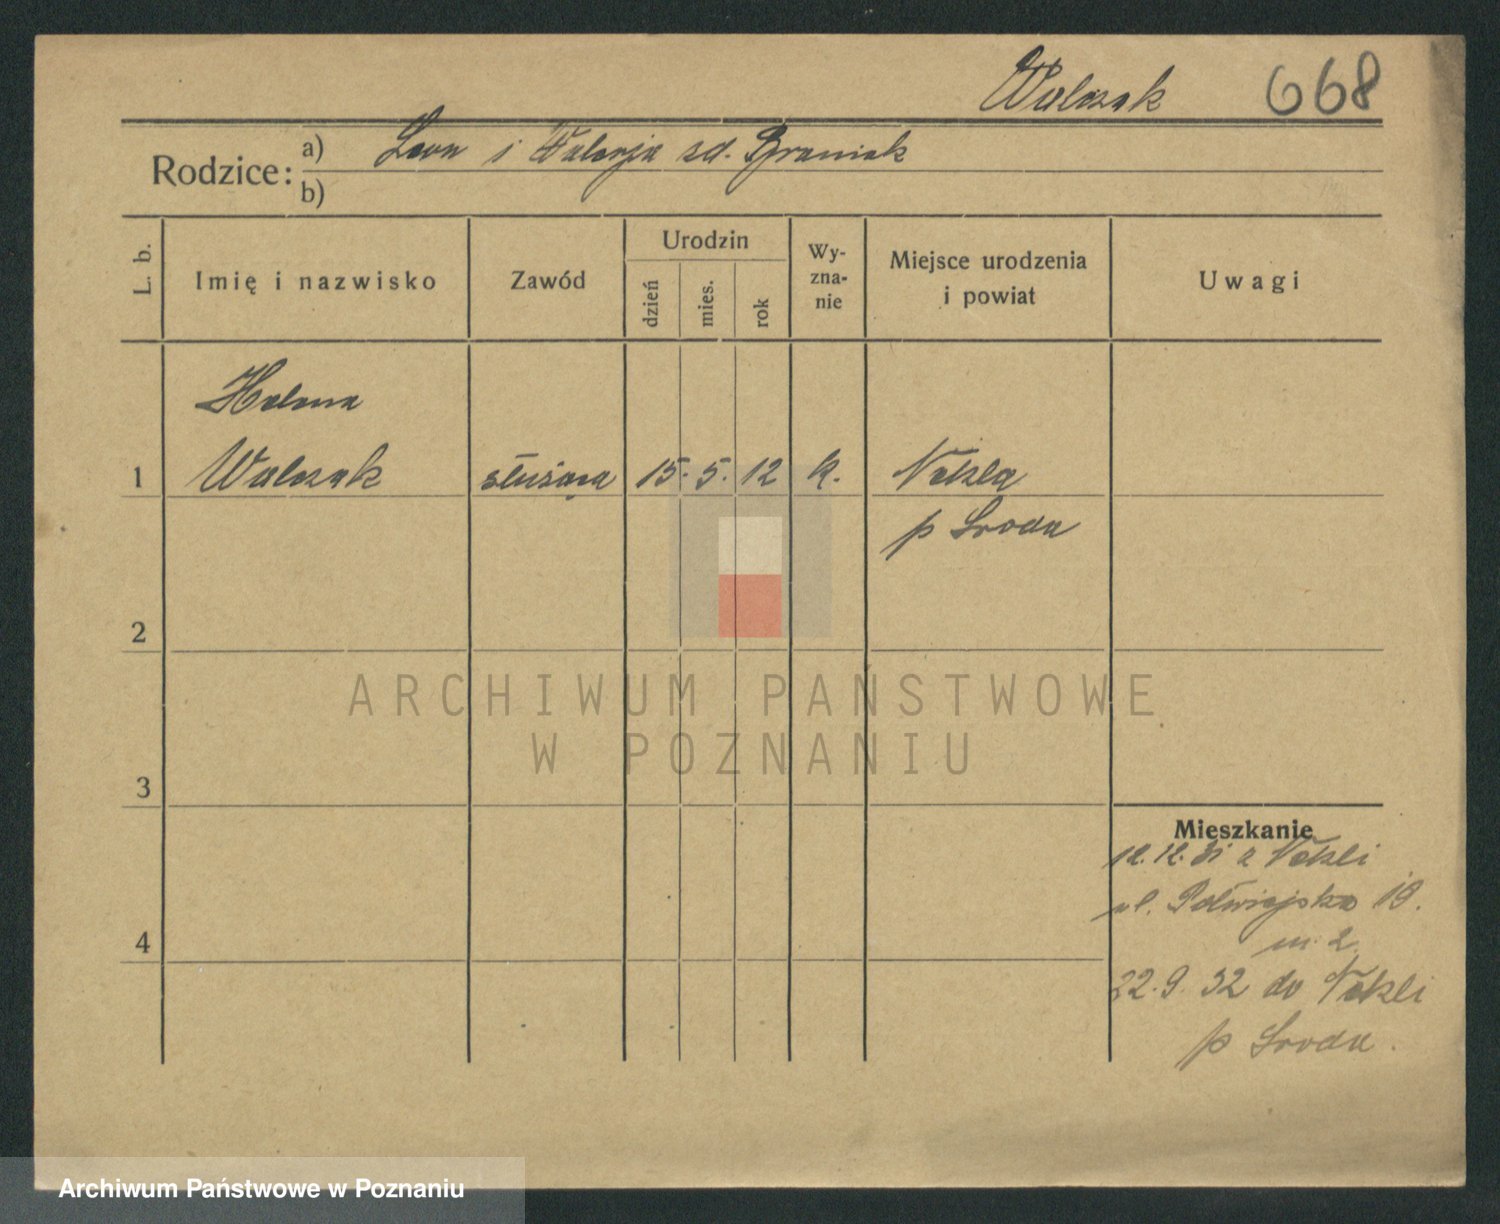 Walczak 668
Rodzice:
a) Leon i Walerja zd. Braniak
b)
L. b.
Imię i nazwisko
Zawód
Urodzin
dzień
mies.
rok
Wy-
zna-
nie
Miejsce urodzenia
i powiat
Uwagi
Helena
1 Walczak służąca 15. 5. 12 k. Nekla
p Sroda
2
3
4
Mieszkanie
12.12.31 z Nekli
ul. Półwiejska 18.
m. 2.
22.9.32 do Nekli
p Sroda.
ARCHIWUM PAŃSTWOWE
W POZNANIU
Archiwum Państwowe w Poznaniu